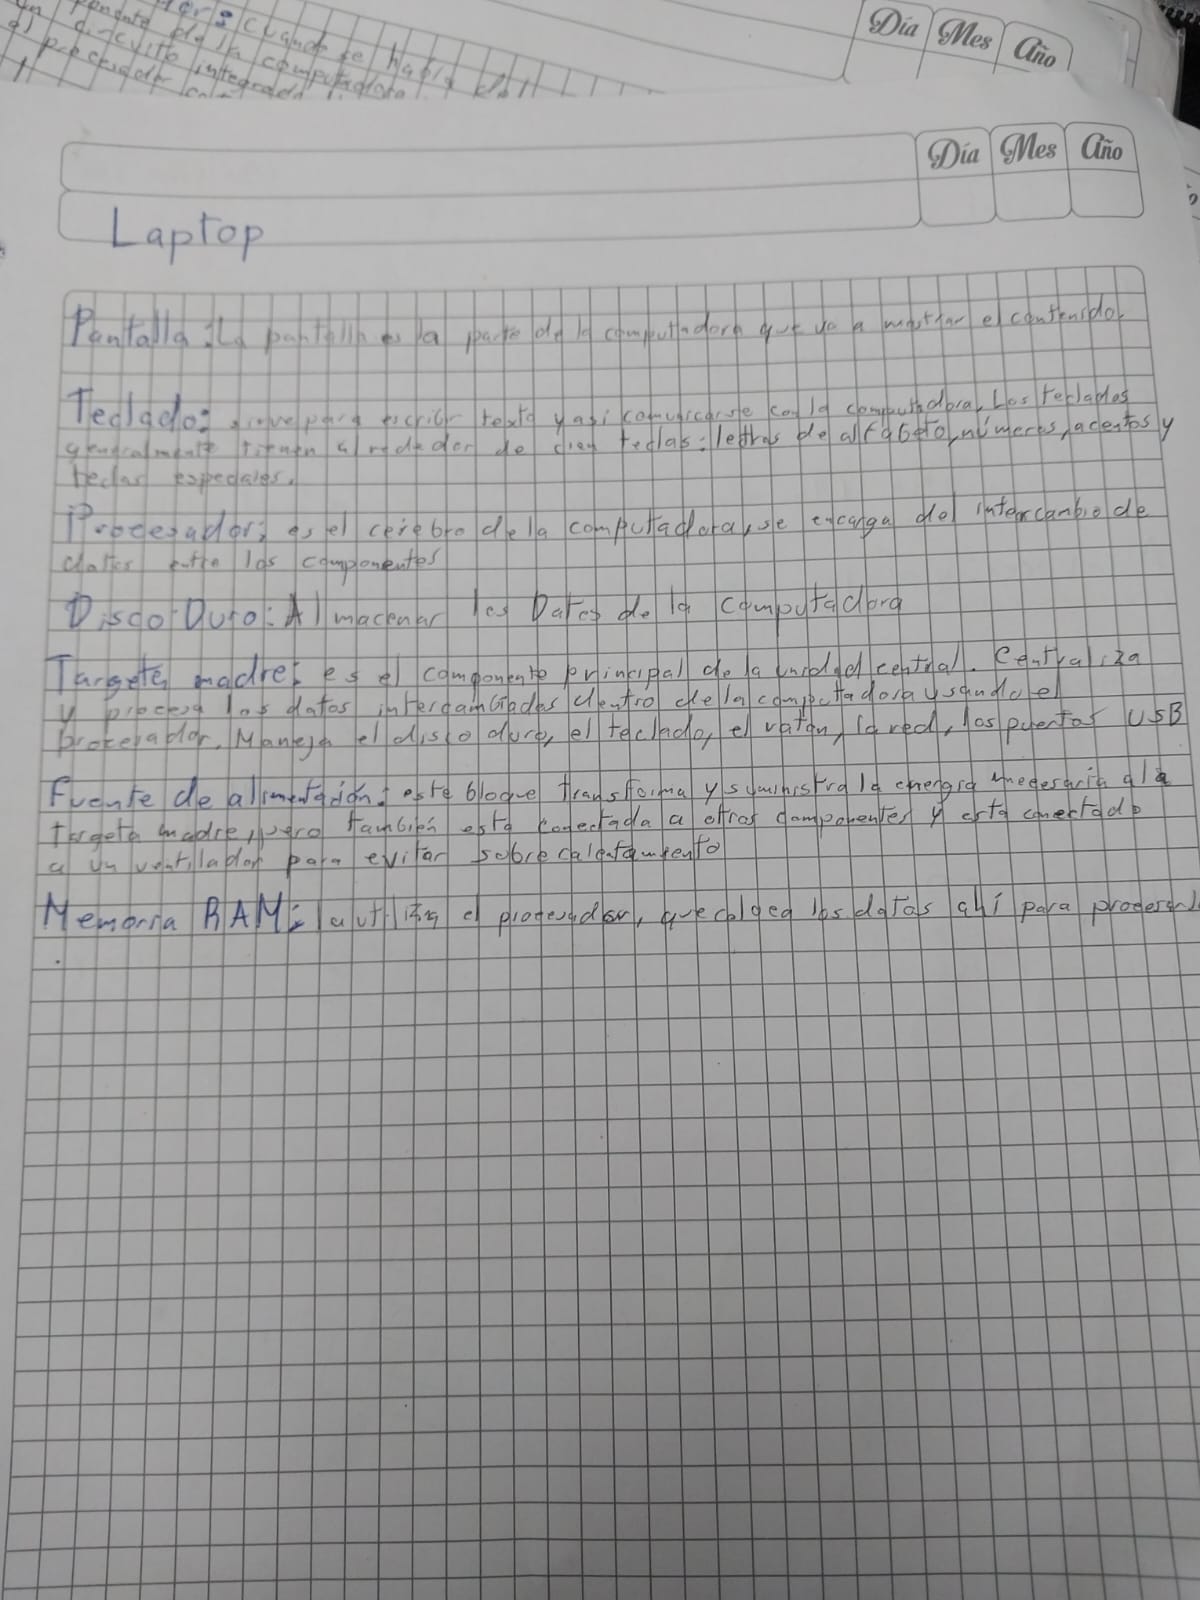 cuando se habla del
ponente de la computadora
un circuito integrado
el procesador
Día Mes Año
Día Mes Año
Laptop
Pantalla: La pantalla es la parte de la computadora que va a mostrar el contenido.
Teclado: sirve para escribir texto y asi comunicarse con la computadora, Los teclados
generalmente tienen alrededor de cien teclas: letras de alfabeto, números, acentos y
teclas especiales.
Procesador: es el cerebro de la computadora, se encarga del intercambio de
datos entre los componentes
Disco Duro: Almacenar los Datos de la computadora
Targeta madre: es el componente principal de la unidad central. Centraliza
y procesa los datos intercambiados dentro de la computadora usando el
procesador. Maneja el disco duro, el teclado, el ratón, la red, los puertos USB
Fuente de alimentación: este bloque transforma y suministra la energía necesaria a la
targeta madre, pero también esta conectada a otros componentes y esta conectado
a un ventilador para evitar sobrecalentamiento
Memoria RAM: la utiliza el procesador, que coloca los datos ahí para
.